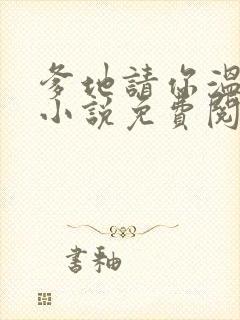 爹地請你溫
小說免費閱
書釉